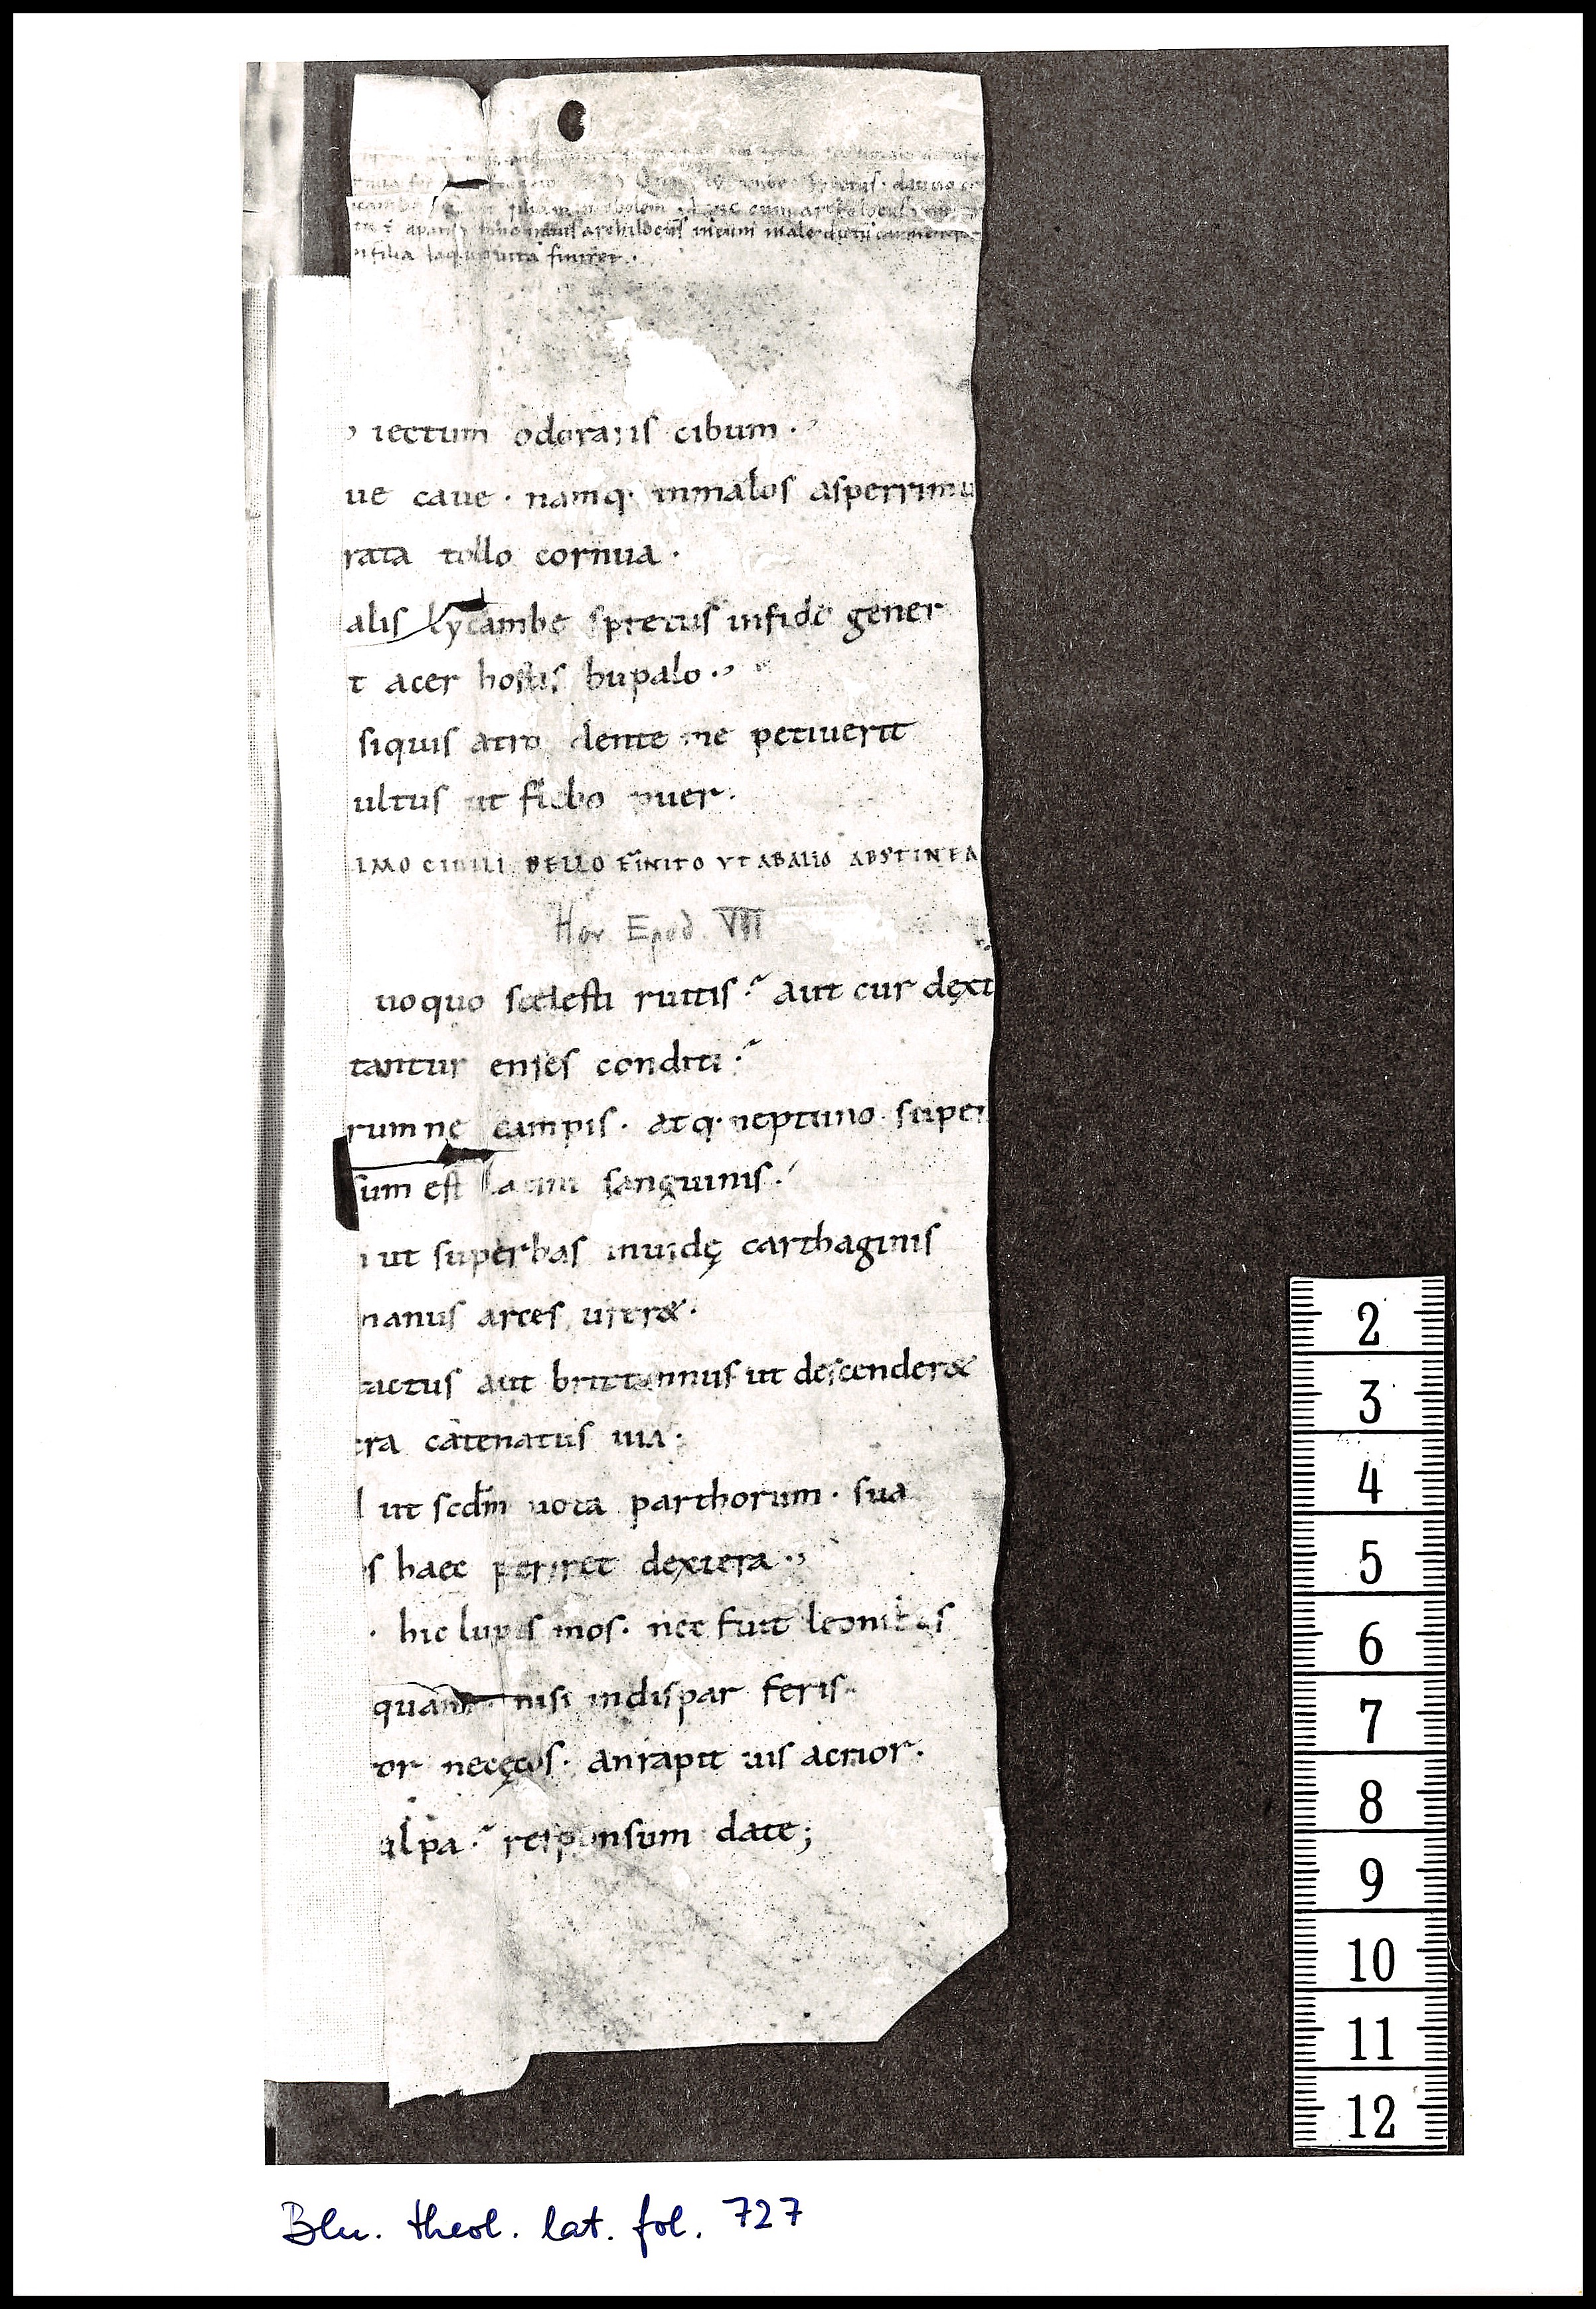 cum archilocus
apans; hinc iratus archilocus in eum maledicum carmen
n filia laqueo uita finiret.
iectum odoraris cibum.
ue caue. namq. inmalos asperrimu
rata tollo cornua.
alis lycambe spretus infido gener
t acer hostis bupalo.
siquis atro dente me petiuerit
ultus ut flebo puer.
IMO CIUILI BELLO FINITO VT ABALIO ABSTINEA
Hor Epod. VII
uoquo scelesti ruitis? aut cur dext
tantur enses conditi?
rumne campis. atq. neptuno super
sum est latini sanguinis.
n ut superbas inuidę carthaginis
manus arces ureret.
tactus aut brittannus ut descenderet
cra catenatus uia.
d ut scdm uota parthorum. sua
s haec periret dextera.
. hic lupis mos. nec fuit leonibus
quam nisi indispar feris.
or necęcos. anrapit uis acrior.
ulpa? responsum date;
2
3
4
5
6
7
8
9
10
11
12
Bln. theol. lat. fol. 727